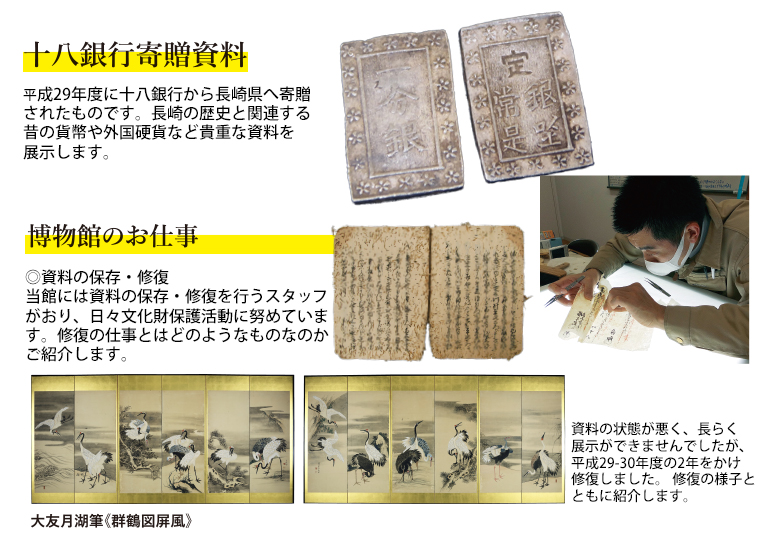 十八銀行寄贈資料
平成29年度に十八銀行から長崎県へ寄贈
されたものです。長崎の歴史と関連する
昔の貨幣や外国硬貨など貴重な資料を
展示します。
一分銀
定
銀座
常是
博物館のお仕事
◎資料の保存・修復
当館には資料の保存・修復を行うスタッフ
がおり、日々文化財保護活動に努めていま
す。修復の仕事とはどのようなものなのか
ご紹介します。
資料の状態が悪く、長らく
展示ができませんでしたが、
平成29-30年度の2年をかけ
修復しました。 修復の様子と
ともに紹介します。
大友月湖筆《群鶴図屏風》